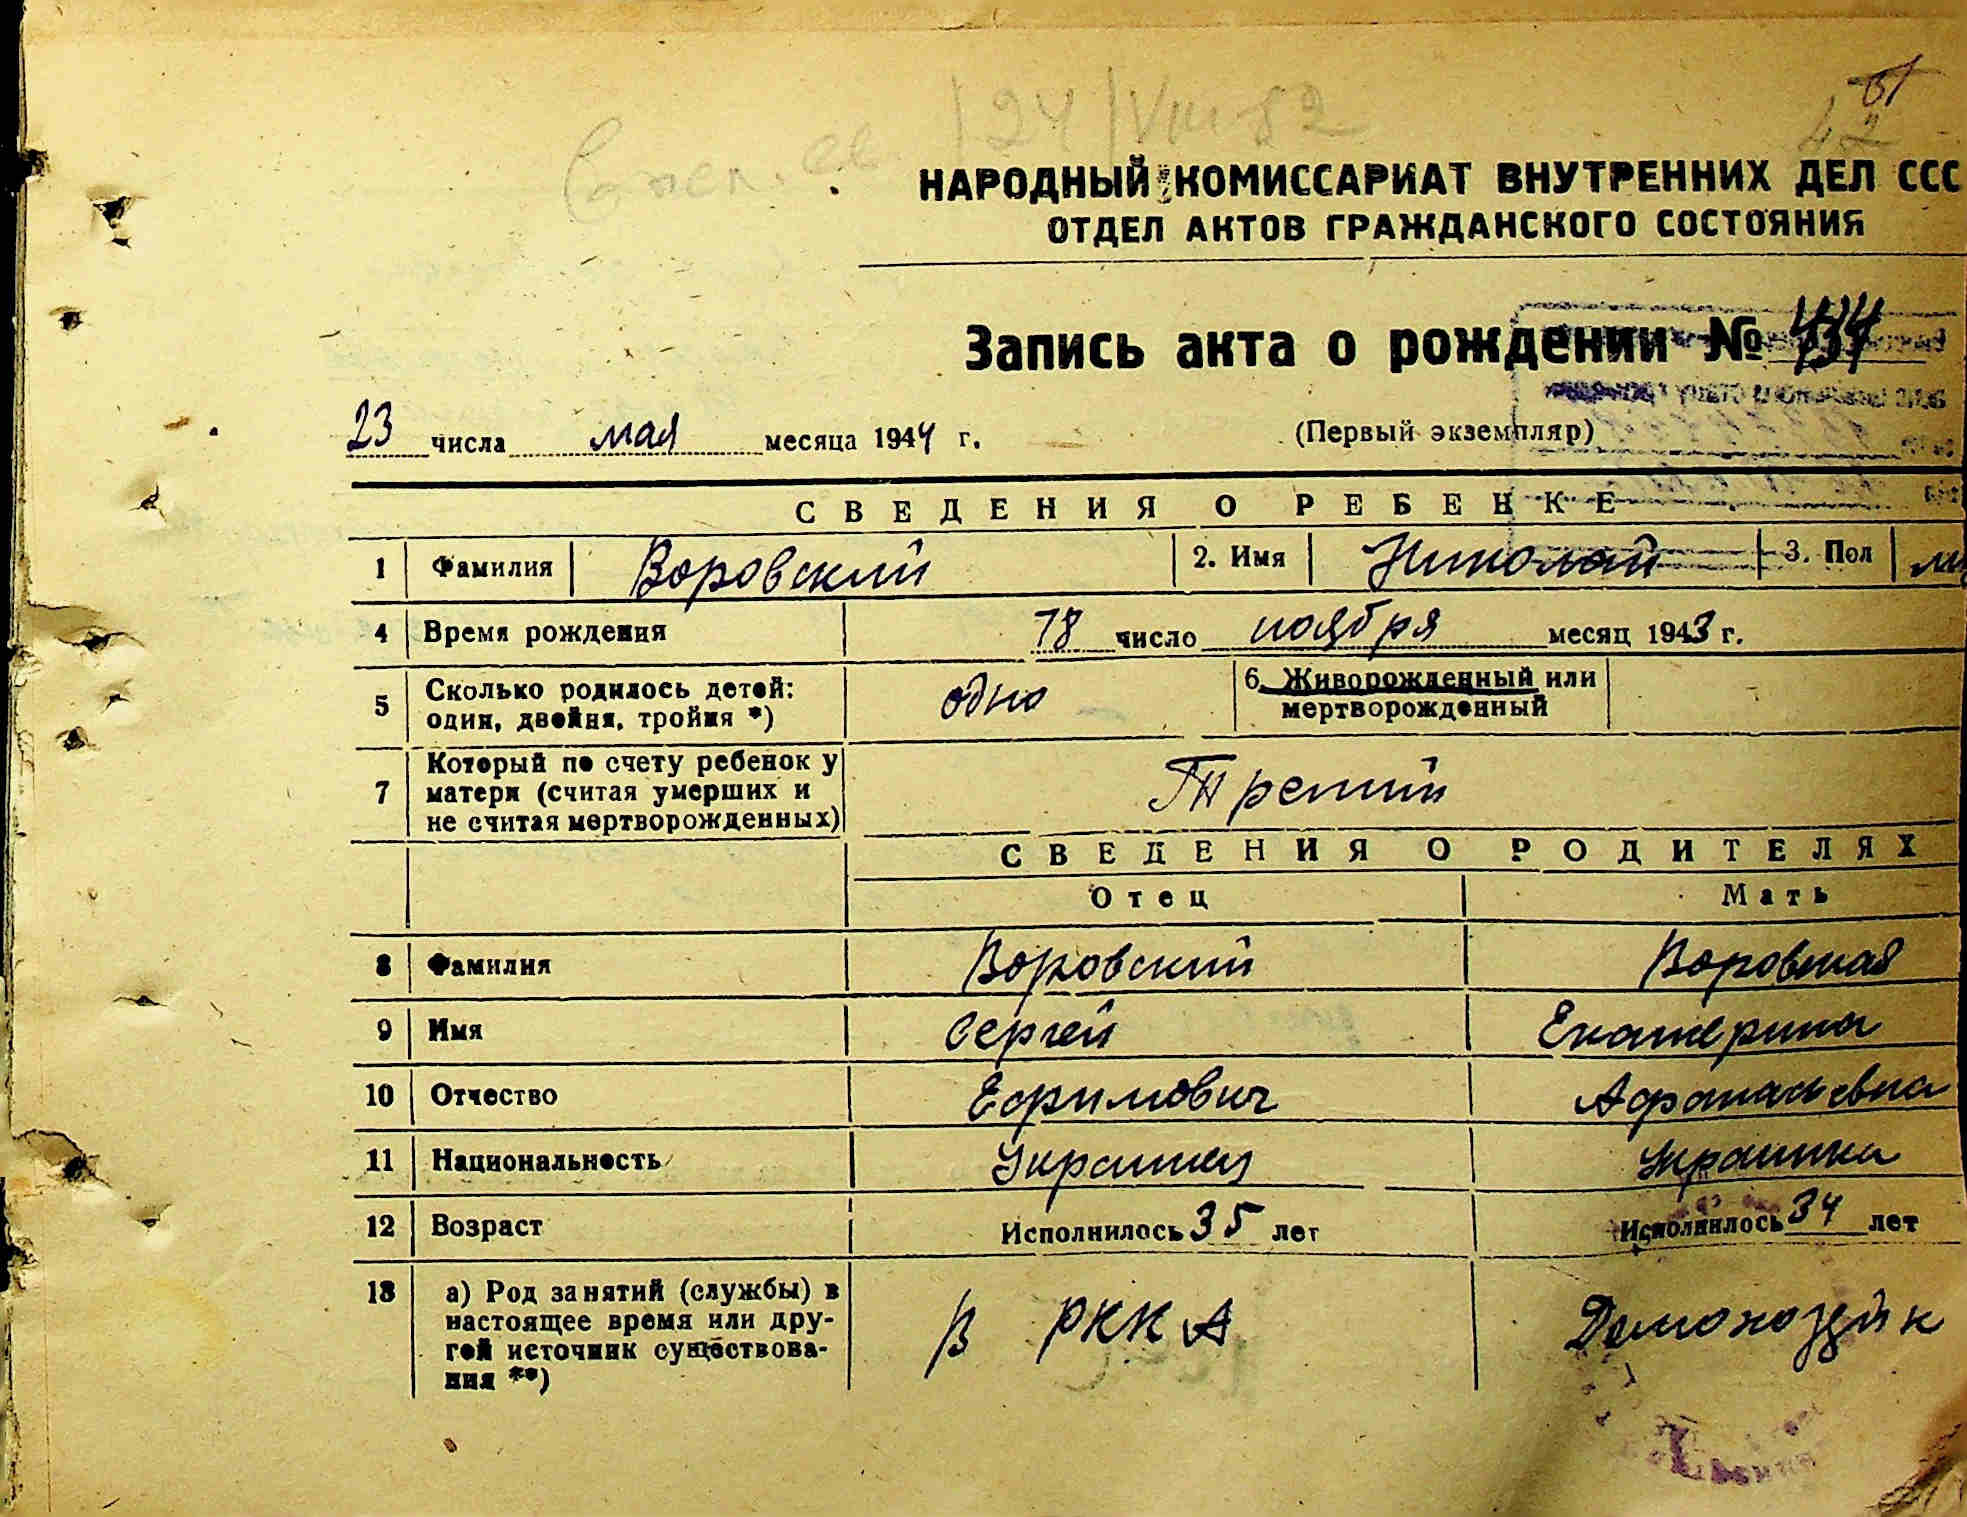 42
НАРОДНЫЙ КОМИССАРИАТ ВНУТРЕННИХ ДЕЛ ССС
ОТДЕЛ АКТОВ ГРАЖДАНСКОГО СОСТОЯНИЯ
Запись акта о рождении №
23 числа мая месяца 1944 г. (Первый экземпляр)
СВЕДЕНИЯ О РЕБЕНКЕ
1 Фамилия Воровский 2. Имя Николай 3. Пол
4 Время рождения 18 число ноября месяц 1943 г.
5 Сколько родилось детей: один, двойня, тройня *) одно 6. Живорожденный или мертворожденный
7 Который по счету ребенок у матери (считая умерших и не считая мертворожденных) Третий
СВЕДЕНИЯ О РОДИТЕЛЯХ
Отец Мать
8 Фамилия Воровский Воровская
9 Имя Сергей Екатерина
10 Отчество Ефимович Афанасьевна
11 Национальность Украинец Украинка
12 Возраст Исполнилось 35 лет Исполнилось 34 лет
13 а) Род занятий (службы) в
настоящее время или дру-
гой источник существова-
ния **) В РККА Домохозяйк